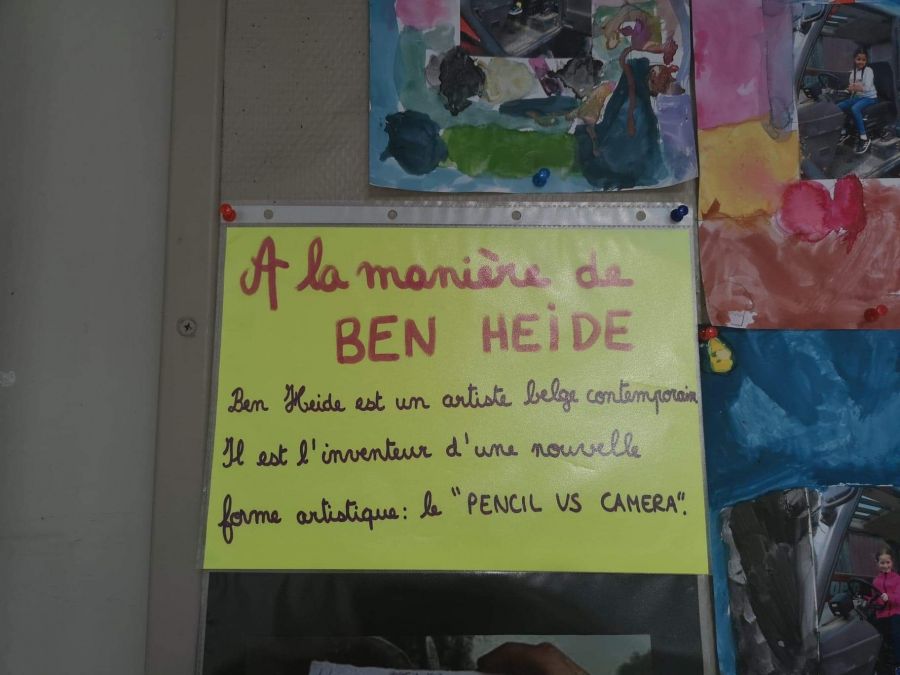 A la manière de
BEN HEIDE
Ben Heide est un artiste belge contemporain
Il est l'inventeur d'une nouvelle
forme artistique: le "PENCIL VS CAMERA".